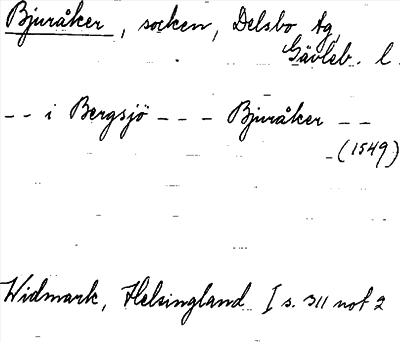 Bjuråker, socken, Delsbo tg,
Gävleb. l.
-- i Bergsjö --- Bjuråker --
-(1549)
Widmark, Helsingland I s. 311 not 2